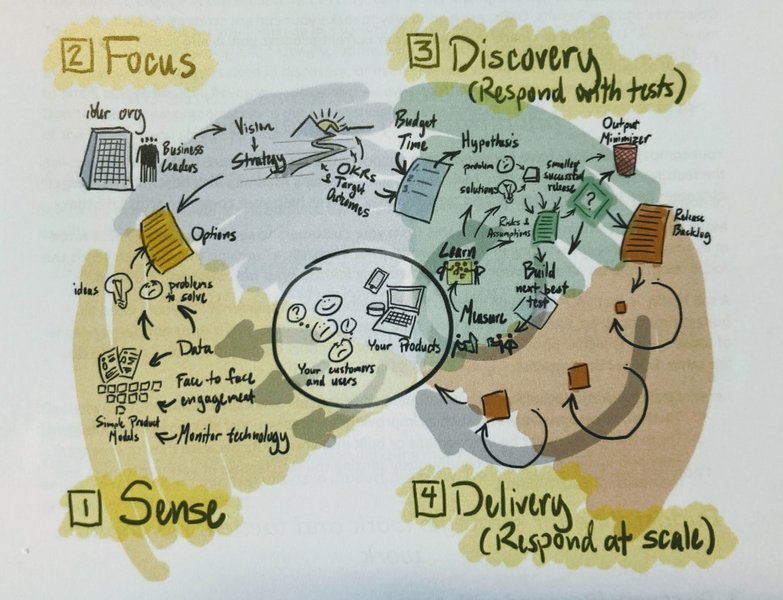 2 Focus
your org
Business
Leaders
Vision
Strategy
OKRs
Target
Outcomes
Options
3 Discovery
(Respond with tests)
Budget
Time
1.
2.
3.
Hypothesis
problem
solutions
smallest
successful
release
Output
Minimizer
?
Risks &
Assumptions
Release
Backlog
Learn
Build
next best
test
Measure
ideas
problems
to solve
Data
Face to face
engagement
Monitor technology
Simple Product
Models
Your customers
and users
Your Products
1 Sense
4 Delivery
(Respond at scale)